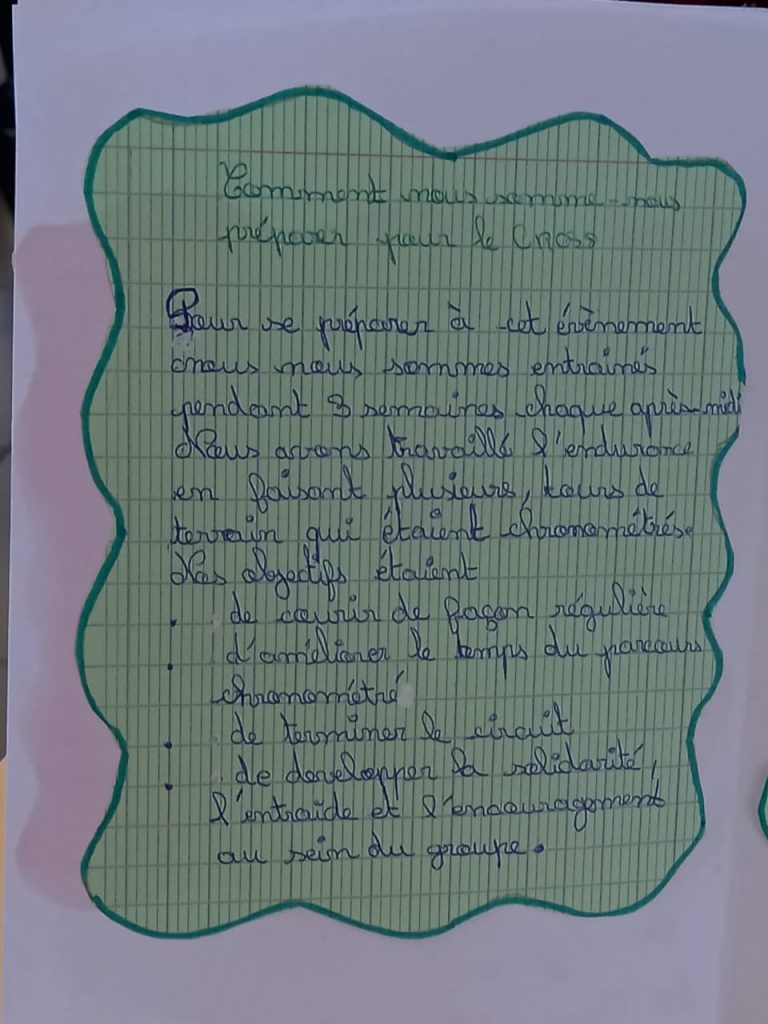 Comment nous somme-nous
préparer pour le Cross
Pour se préparer à cet évènement
nous nous sommes entraînés
pendant 3 semaines chaque après-midi
Nous avons travaillé l'endurance
en faisant plusieurs, tours de
terrain qui étaient chronométrése
Nos objectifs étaient
. de courir de façon régulière
. d'améliorer le temps du parcours
chronométré
. de terminer le circuit
. de developper la solidarité,
l'entraide et l'encouragement
au sein du groupe.